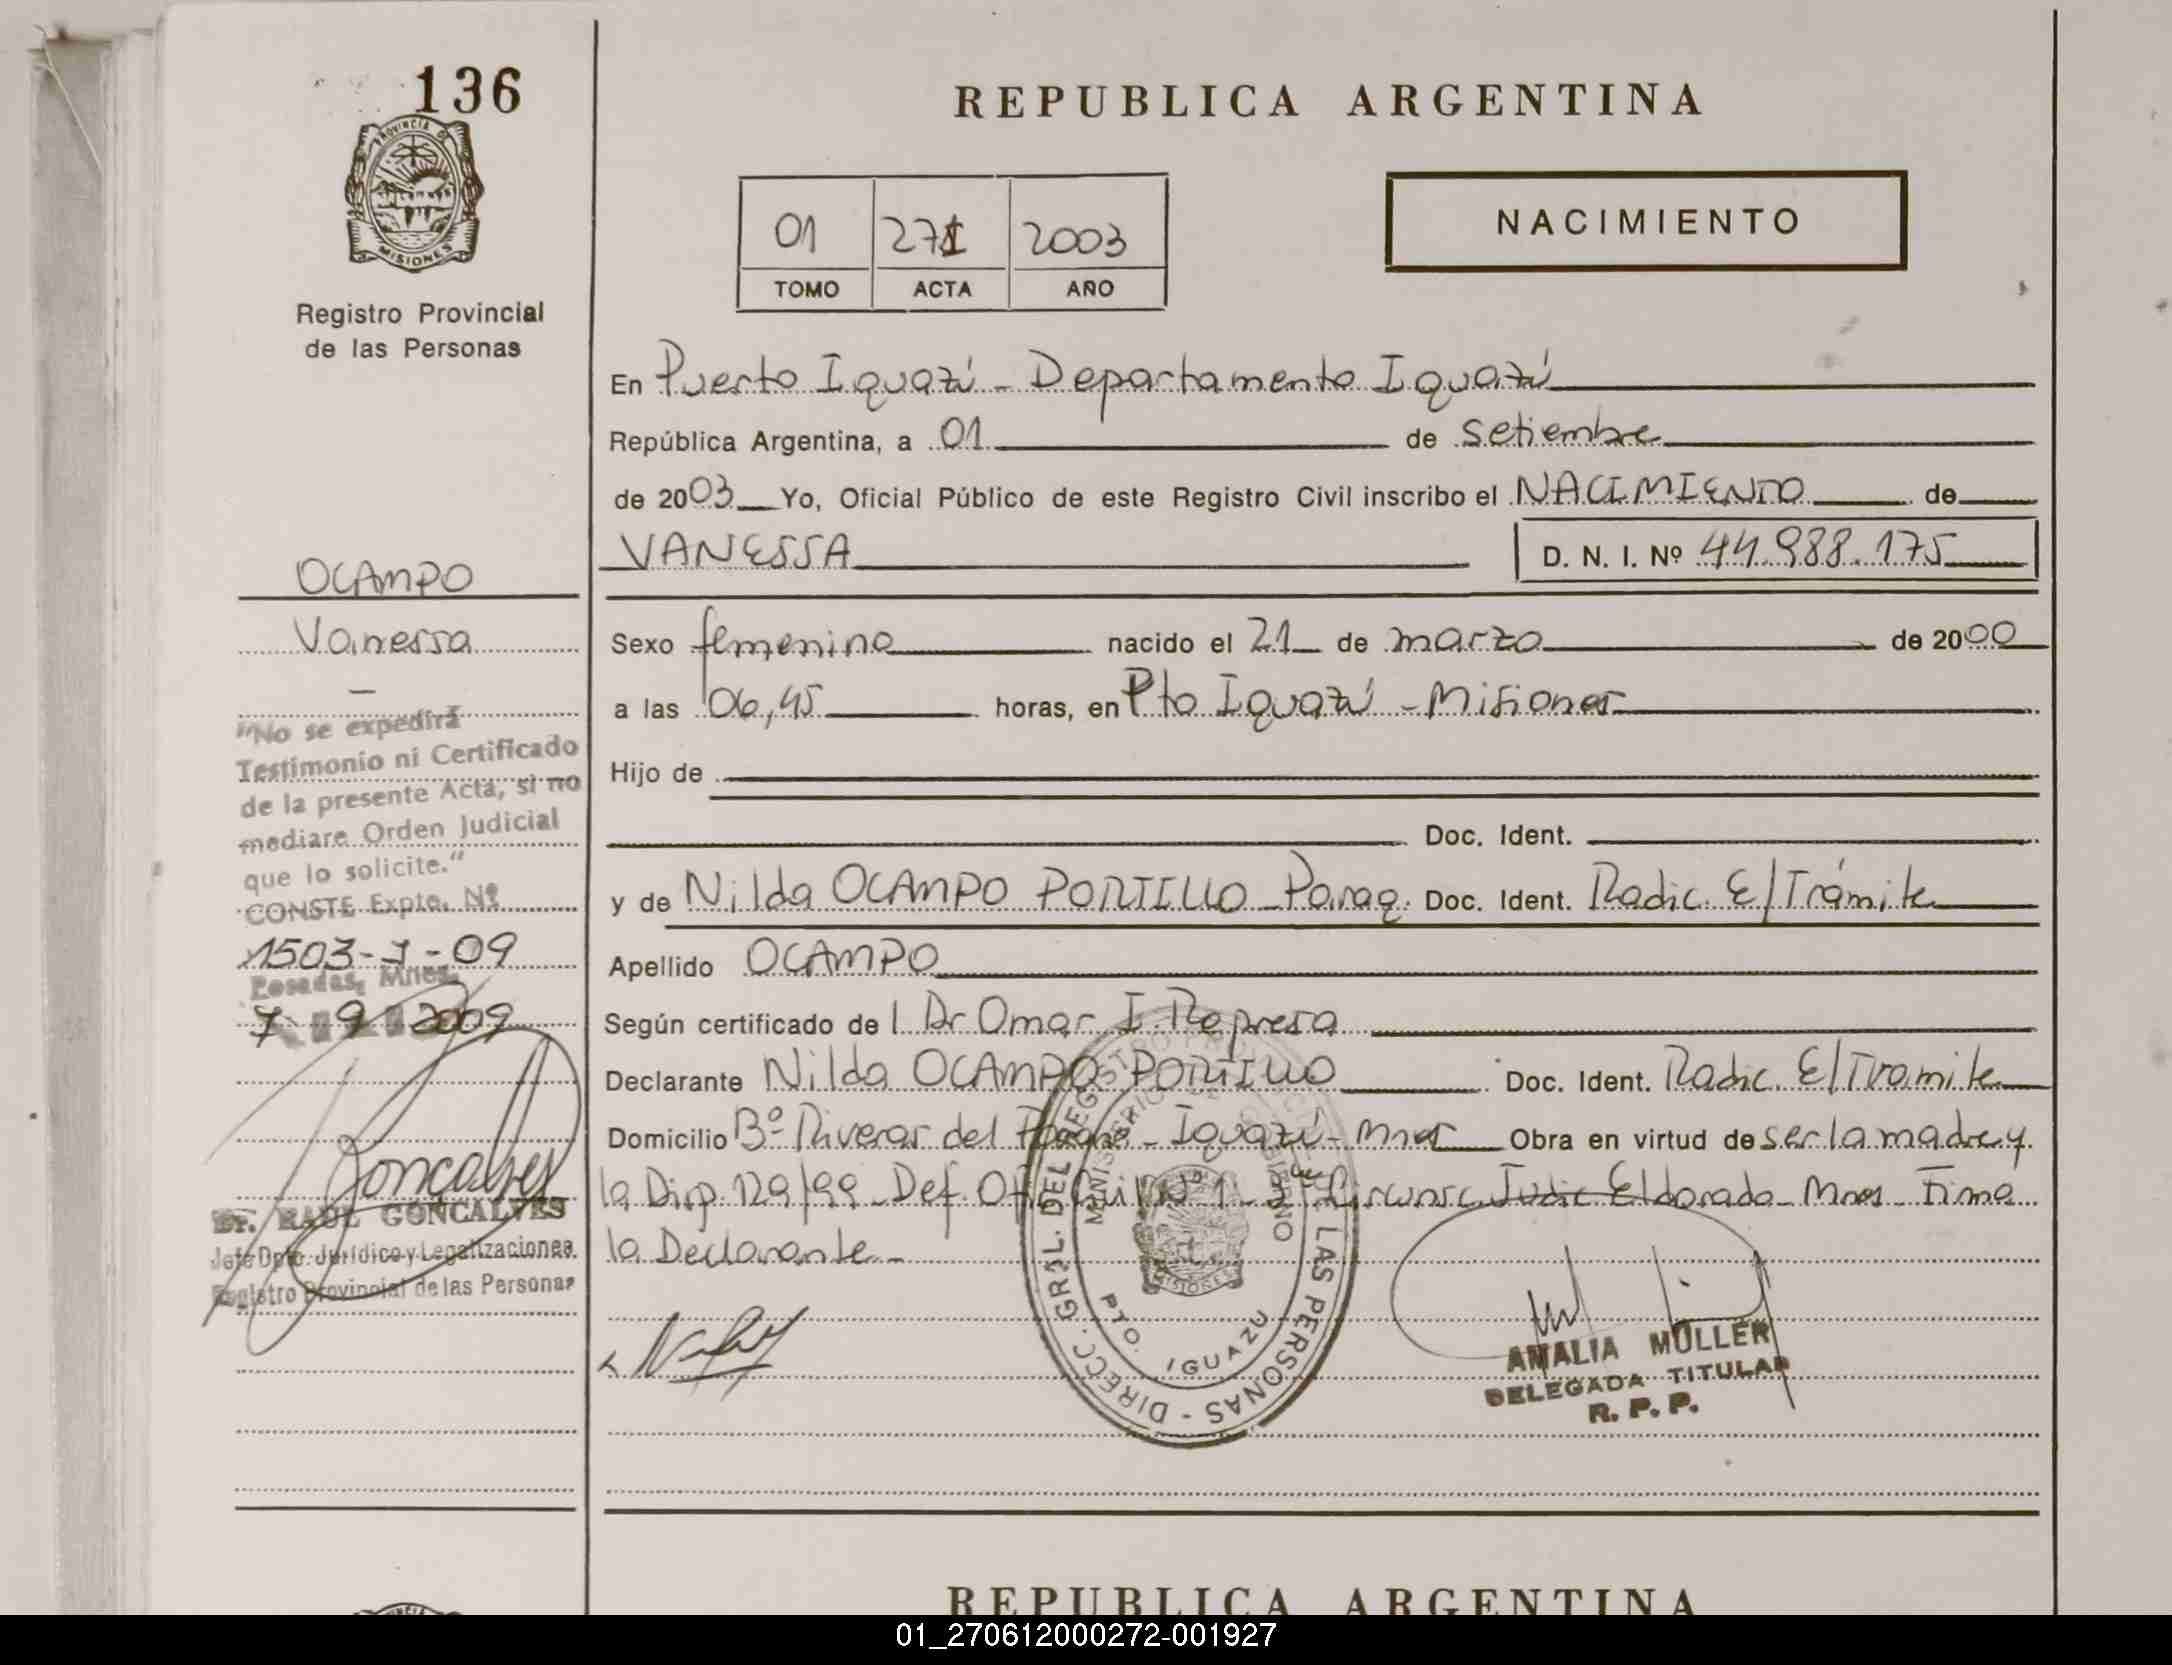 136
PROVINCIA DE
MISIONES
Registro Provincial
de las Personas
OCAMPO
Vanessa
—
"No se expedirá
Testimonio ni Certificado
de la presente Acta, si no
mediare Orden Judicial
que lo solicite."
CONSTE Expte. Nº
1503-J-09
Posadas, Mnes.
7 9 2009
Goncalves
Dr. RAUL GONCALVES
Jefe Dpto. Jurídico y Legalizaciones.
Registro Provincial de las Personas
REPUBLICA ARGENTINA
01 271 2003
TOMO ACTA AÑO
NACIMIENTO
En Puerto Iguazú - Departamento Iguazú
República Argentina, a 01 de setiembre
de 2003 Yo, Oficial Público de este Registro Civil inscribo el NACIMIENTO de
VANESSA D. N. I. Nº 44.988.175
Sexo femenino nacido el 21 de marzo de 2000
a las 06,45 horas, en Pto Iguazú - Misiones
Hijo de
Doc. Ident.
y de Nilda OCAMPO PORTILLO - Parag. Doc. Ident. Radic. E/Trámite
Apellido OCAMPO
Según certificado de l Dr Omar I. Represa
Declarante Nilda OCAMPO PORTILLO Doc. Ident. Radic. E/Tramite
Domicilio Bº Riveras del Paraná - Iguazú - Mnes Obra en virtud de ser la madre y
la Disp. 129/99 - Def. Of. Civil Nº 1 - Circunsc. Judic Eldorado - Mnes Firma
la Declarante -
DIRECC. GRAL. DEL REGISTRO PROV. DE LAS PERSONAS
MINISTERIO DE GOBIERNO
MISIONES
PTO. IGUAZU
AMALIA MÜLLER
DELEGADA TITULAR
R. P. P.
REPUBLICA ARGENTINA
01_270612000272-001927